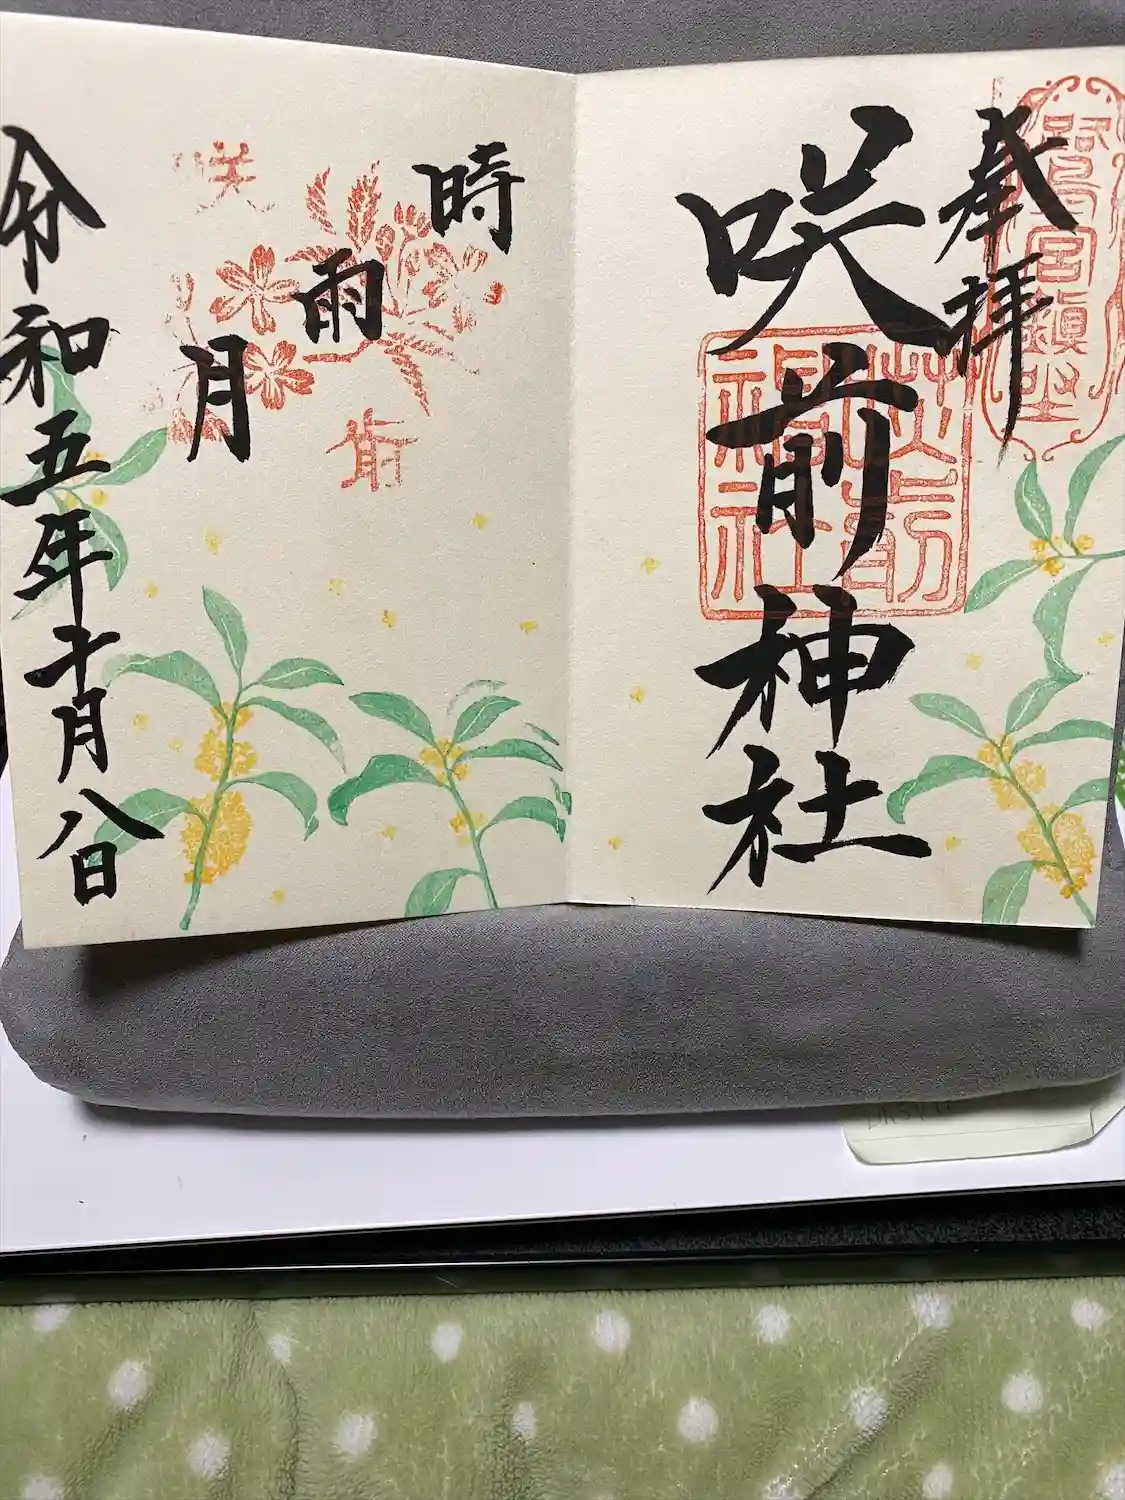 奉拝
咲前神社
鷺宮鎮座
咲前神社
時雨月
咲
前
令和五年十月八日